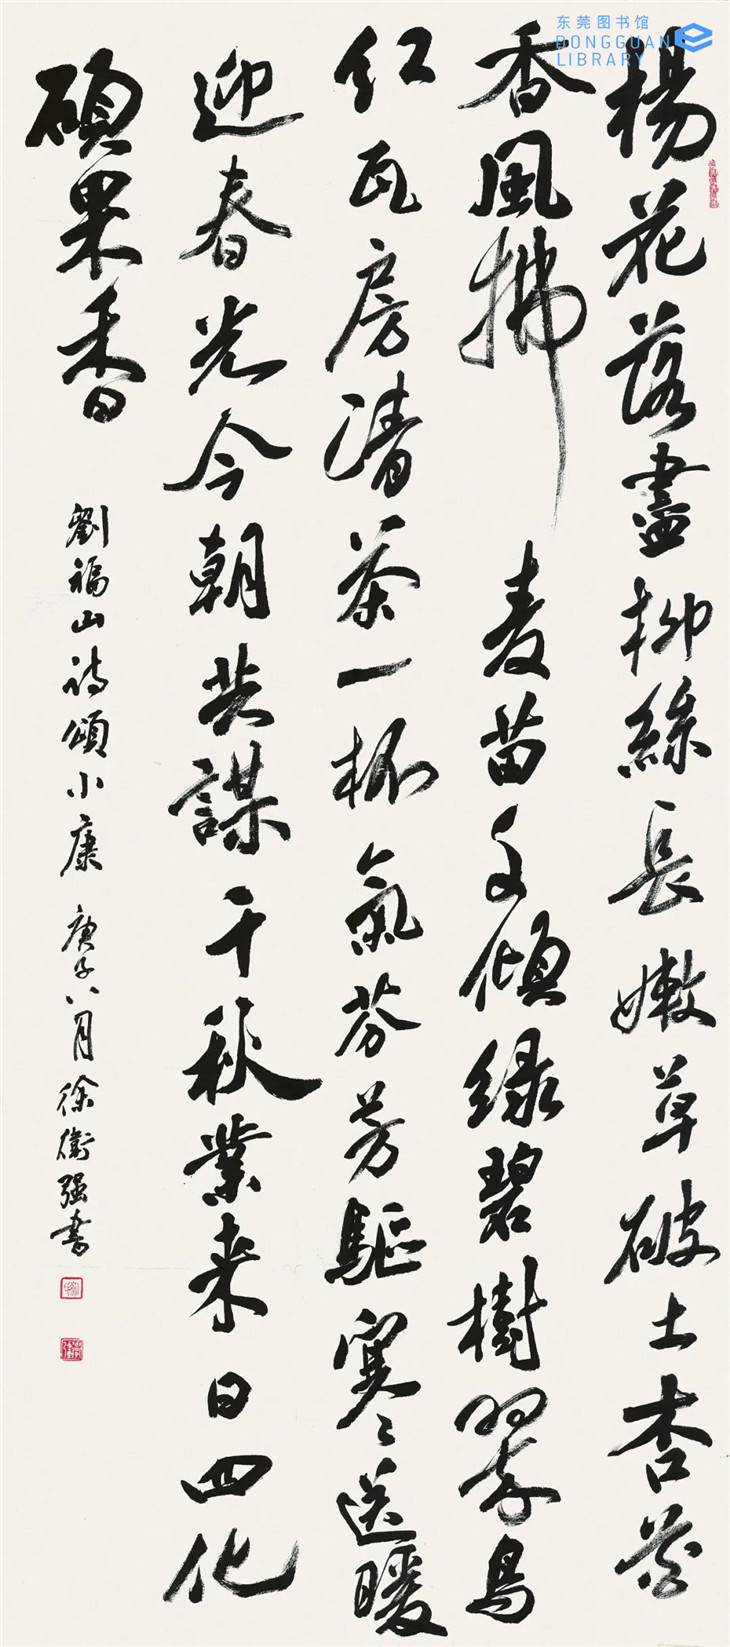 东莞图书馆
DONGGUAN
LIBRARY
楊花落盡柳絲長嫩草破土杏花
香風拂麦苗傾绿碧樹翠鳥
红瓦房清茶一杯氣芬芳驅寒送暖
迎春光今朝共謀千秋業来日四化
碩果香
劉福山诗頌小康 庚子八月徐衛强書